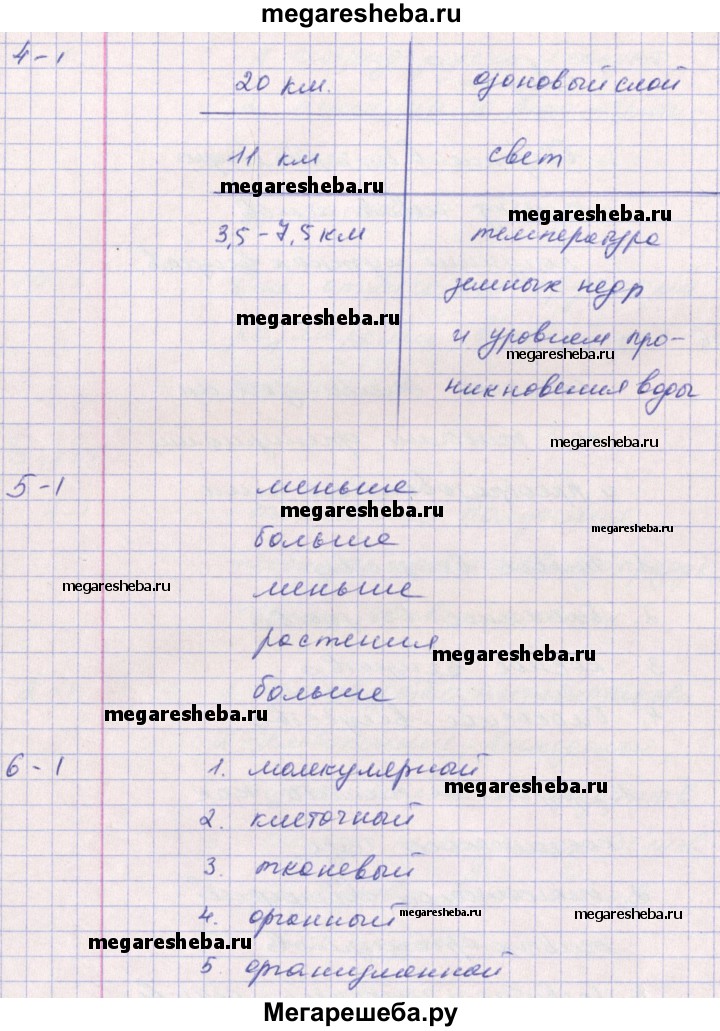 megaresheba.ru
4-1
20 км. озоновый слой
11 км свет
megaresheba.ru
megaresheba.ru
3,5-7,5 км температура
земных недр
megaresheba.ru
и уровнем про-
megaresheba.ru
никновения воды
megaresheba.ru
5-1 меньше
megaresheba.ru
megaresheba.ru
больше
megaresheba.ru
меньше
растения
megaresheba.ru
больше
megaresheba.ru
6-1 1. молекулярный
megaresheba.ru
2. клеточный
3. тканевый
4. органный
megaresheba.ru
megaresheba.ru
megaresheba.ru
5. организменной
Мегарешеба.ру